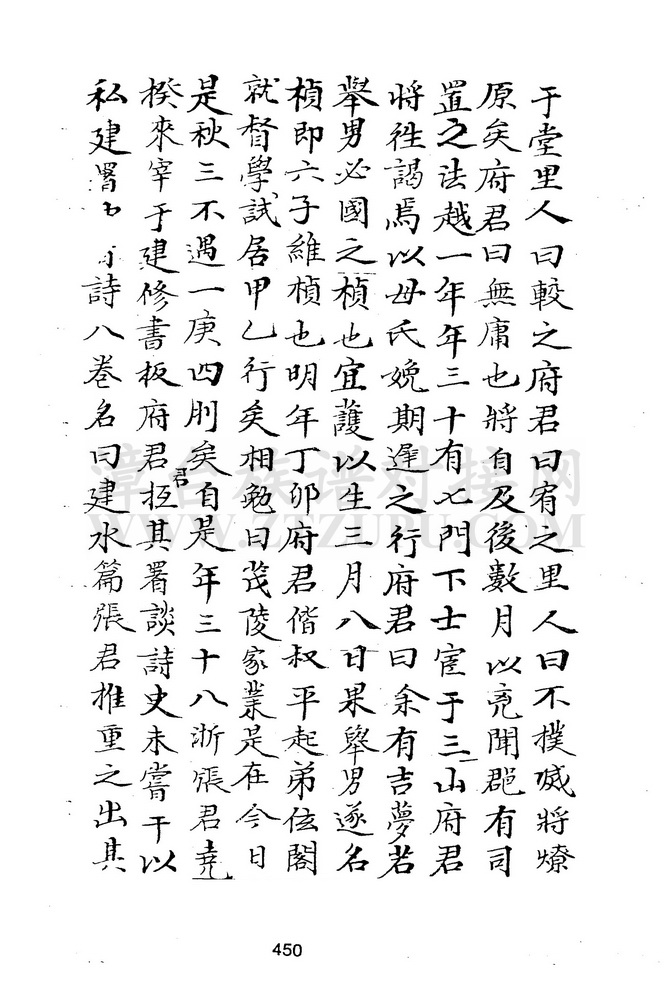 于堂里人曰較之府君曰宥之里人曰不撲㓕將燎
原矣府君曰無庸也將自及後數月以竟聞郡有司
置之法越一年年三十有七門下士宦于三山府君
將徃謁焉以母氏娩期遲之行府君曰余有吉夢若
舉男必國之楨也宜護以生三月八日果舉男遂名
楨即六子維楨也明年丁卯府君偕叔平起弟伭閣
就督學試居甲乙行矣相勉曰茂陵家業是在今日
是秋三不遇一庚四刖矣自是年三十八浙張君堯
揆來宰于建修書板府君抂其署談詩史未嘗干以
君
私建署 詩八卷名曰建水篇張君推重之出其
漳台族谱对接网
WWW.ZTZUPU.COM
450